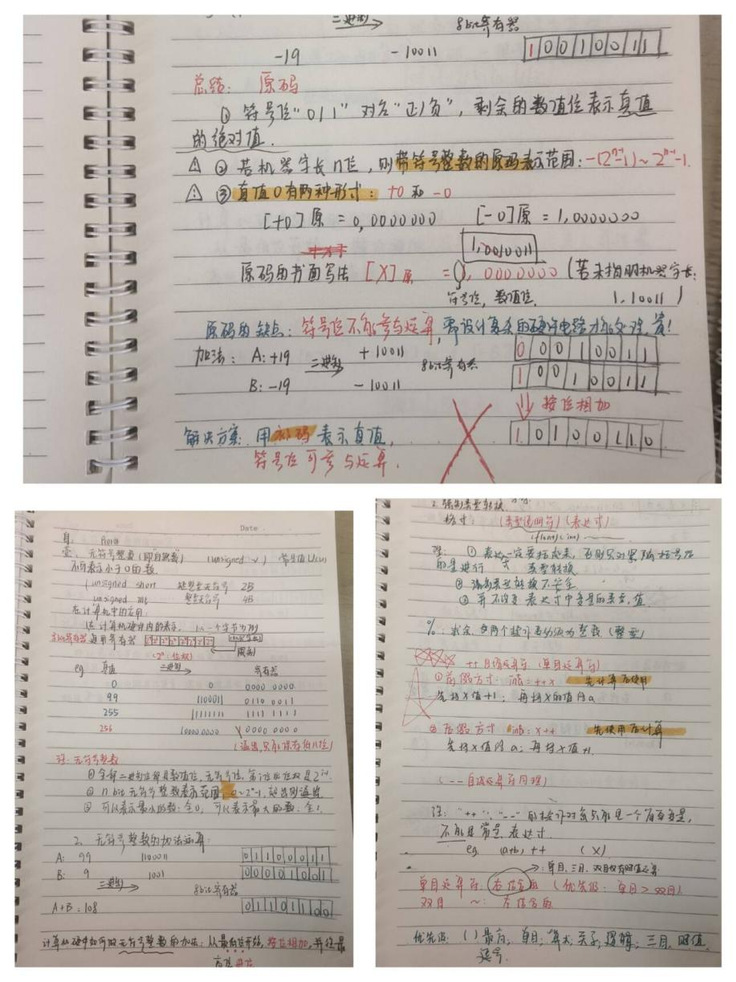 二进制 8bit寄存器
-19 -10011 1 0 0 1 0 0 1 1
总结: 原码
① 符号位"0/1"对应"正/负", 剩余的数值位表示真值
的绝对值.
② 若机器字长n位, 则带符号整数的原码表示范围: -(2ⁿ⁻¹-1) ~ 2ⁿ⁻¹-1.
③ 真值0有两种形式: +0 和 -0
[+0]原 = 0,0000000 [-0]原 = 1,0000000
1,0010011
原码的书面写法 [X]原 = 0, 0000000 (若未指明机器字长:
符号位, 数值位. 1,10011)
原码的缺点: 符号位不能参与运算, 需设计复杂的硬件电路才能处理, 贵!
加法: A: +19 二进制 +10011 8bit寄存器 0 0 0 1 0 0 1 1
B: -19 -10011 1 0 0 1 0 0 1 1
按位相加
解决方案: 用补码表示真值, 1 0 1 0 0 1 1 0
符号位可参与运算.
Date
无符号整数 (即自然数) (unsigned ~)
不可表示小于0的数.
unsigned short 短整型无符号 2B
unsigned int 整型无符号 4B
在计算机中的应用
eg 真值 二进制 寄存器
0 0 0000 0000
99 1100011 0110 0011
255 11111111 1111 1111
256 100000000 0000 0000
注: 无符号整数
③ 可以表示最小的数: 全0, 可以表示最大的数: 全1.
2. 无符号整数的加法运算:
A: 99 1100011 0 1 1 0 0 0 1 1
B: 9 1001 0 0 0 0 1 0 0 1
二进制 8bit寄存器
A+B: 108 0 1 1 0 1 1 0 0
计算机硬件如何做无符号整数的加法: 从最低位开始, 按位相加, 并往最
高位进位
2. 强制类型转换
格式: (类型说明符) (表达式)
② 强制类型转换不安全
③ 并不改变表达式中变量的类型、值
%: 求余, 要两个操作数均为整数 (整型)
++ 自增运算符 (单目运算符)
① 前缀方式: a = ++x 先计算后使用
先将x值+1, 再将x的值给a
② 后缀方式: a = x++ 先使用后计算
先将x值给a, 再将x值+1.
(-- 自减运算符同理)
注: "++" "--" 的操作对象只能是一个有效变量,
不能是常量、表达式.
eg (a+b)++ (×)
单目、三目、双目仅有赋值运算
单目运算符: 右结合 (优先级: 单目 > 双目)
双目 ~: 左结合
优先级: ( ) 最高, 单目, 算术, 关系, 逻辑, 三目, 赋值,
逗号.